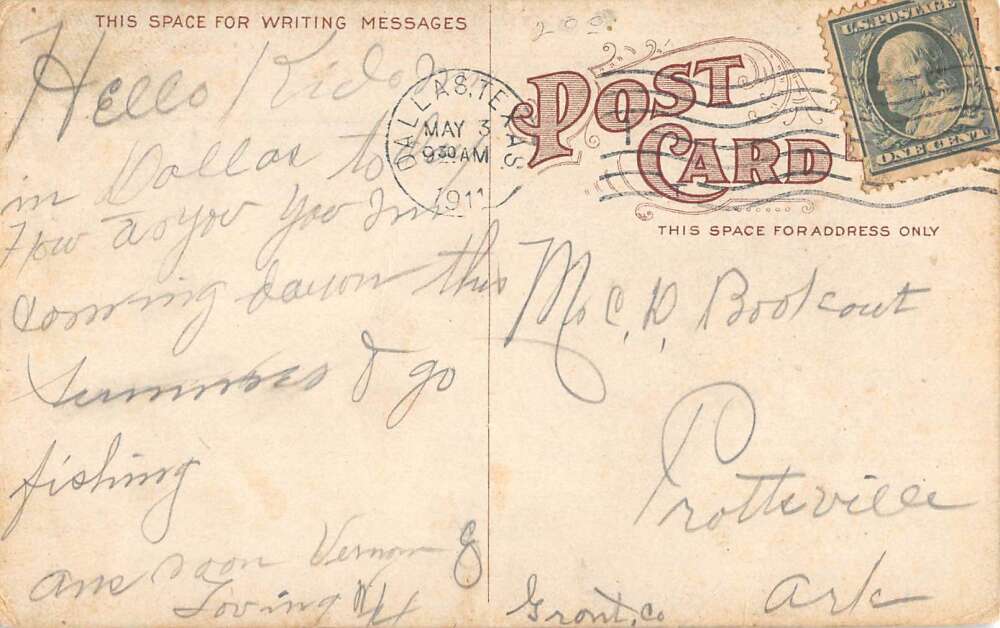 THIS SPACE FOR WRITING MESSAGES
Hello Kido
in Dallas to
How as you you
coming down this
summer & go
fishing
ans soon Vernon
Loving
200
POST
CARD
DALLAS, TEXAS
MAY 3
9 30 AM
1911
U.S. POSTAGE
ONE CENT
THIS SPACE FOR ADDRESS ONLY
C. D. Bookout
Prottsville
Ark
Gront, co